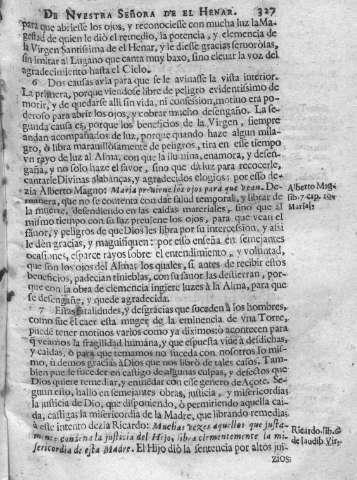 DE NVESTRA SEÑORA DE EL HENAR. 327
para que abriesse los ojos, y reconociesse con mucha luz la Ma-
gestad de quien le diò el remedio, la potencia, y clemencia de
la Virgen Santissima de el Henar, y le diesse gracias fervorosas,
sin imitar al Lugano que canta muy baxo, sino elevar la voz del
agradecimiento hasta el Cielo.
6 Dos causas avia para que se le avivasse la vista interior.
La primera, porque viendose libre de peligro evidentissimo de
morir, y de quedarse alli sin vida, ni confession, motivo era po-
deroso para abrir los ojos, y cobrar mucho desengaño. La se-
gunda causa es, porque los beneficios de la Virgen, siempre
andan acompañados de luz, porque quando haze algun mila-
gro, ò libra maravillosamente de peligros, tira en esse tiempo
vn rayo de luz al Alma, con que la ilumina, enamora, y desen-
gaña, y no solo haze el favor, sino que dà luz para reconocerle,
cantarle Divinas alabanças, y agradecidos elogios: por esso de-
zia Alberto Magno: Maria previene los ojos para que vean. De ma-
nera, que no se contenta con dar salud temporal, y librar de
la muerte, defendiendo en las caidas materiales, sino que al
mismo tiempo con su luz previene los ojos, para que vean el
favor, y peligros de que Dios les libra por su intercession, y assi
le den gracias, y magnifiquen: por esso enseña en semejantes
ocasiones, esparce rayos sobre el entendimiento, y voluntad,
que son los ojos del Alma: los quales, si antes de recibir estos
beneficios, padecian tinieblas, con su favor las destierran, por-
que con la obra de clemencia ingiere luzes à la Alma, para que
se desengañe, y quede agradecida.
7 Estas fatalidades, y desgracias que suceden à los hombres,
como fue el caer esta muger de la eminencia de vna Torre,
puede tener motivos varios como ya diximos: ò acontecen para
q̃ veamos la fragilidad humana, y que espuesta vive à desdichas,
y caidas, ò para que temamos no suceda con nosotros lo mis-
mo, ù demos gracias à Dios que nos librò de tales casos. Tam-
bien puede ser suceden en castigo de algunas culpas, y defectos que
Dios quiere remediar, y enmendar con esse genero de Açote. Se-
gun esto, hallo en semejantes obras, justicia, y misericordia:
la justicia de Dios, que disponiendo, ò permitiendo aquella cai-
da, castiga: la misericordia de la Madre, que librando remedia:
à este intento dezia Ricardo: Muchas vezes aquellos que justa-
mente condena la justicia del Hijo, libra clementemente la mi-
sericordia de esta Madre. El Hijo diò la sentencia por altos jui-
zios:
Alberto Mag.
lib. 7. cap.
Marial.
Ricardo. lib. 6.
de laudib. Virg.